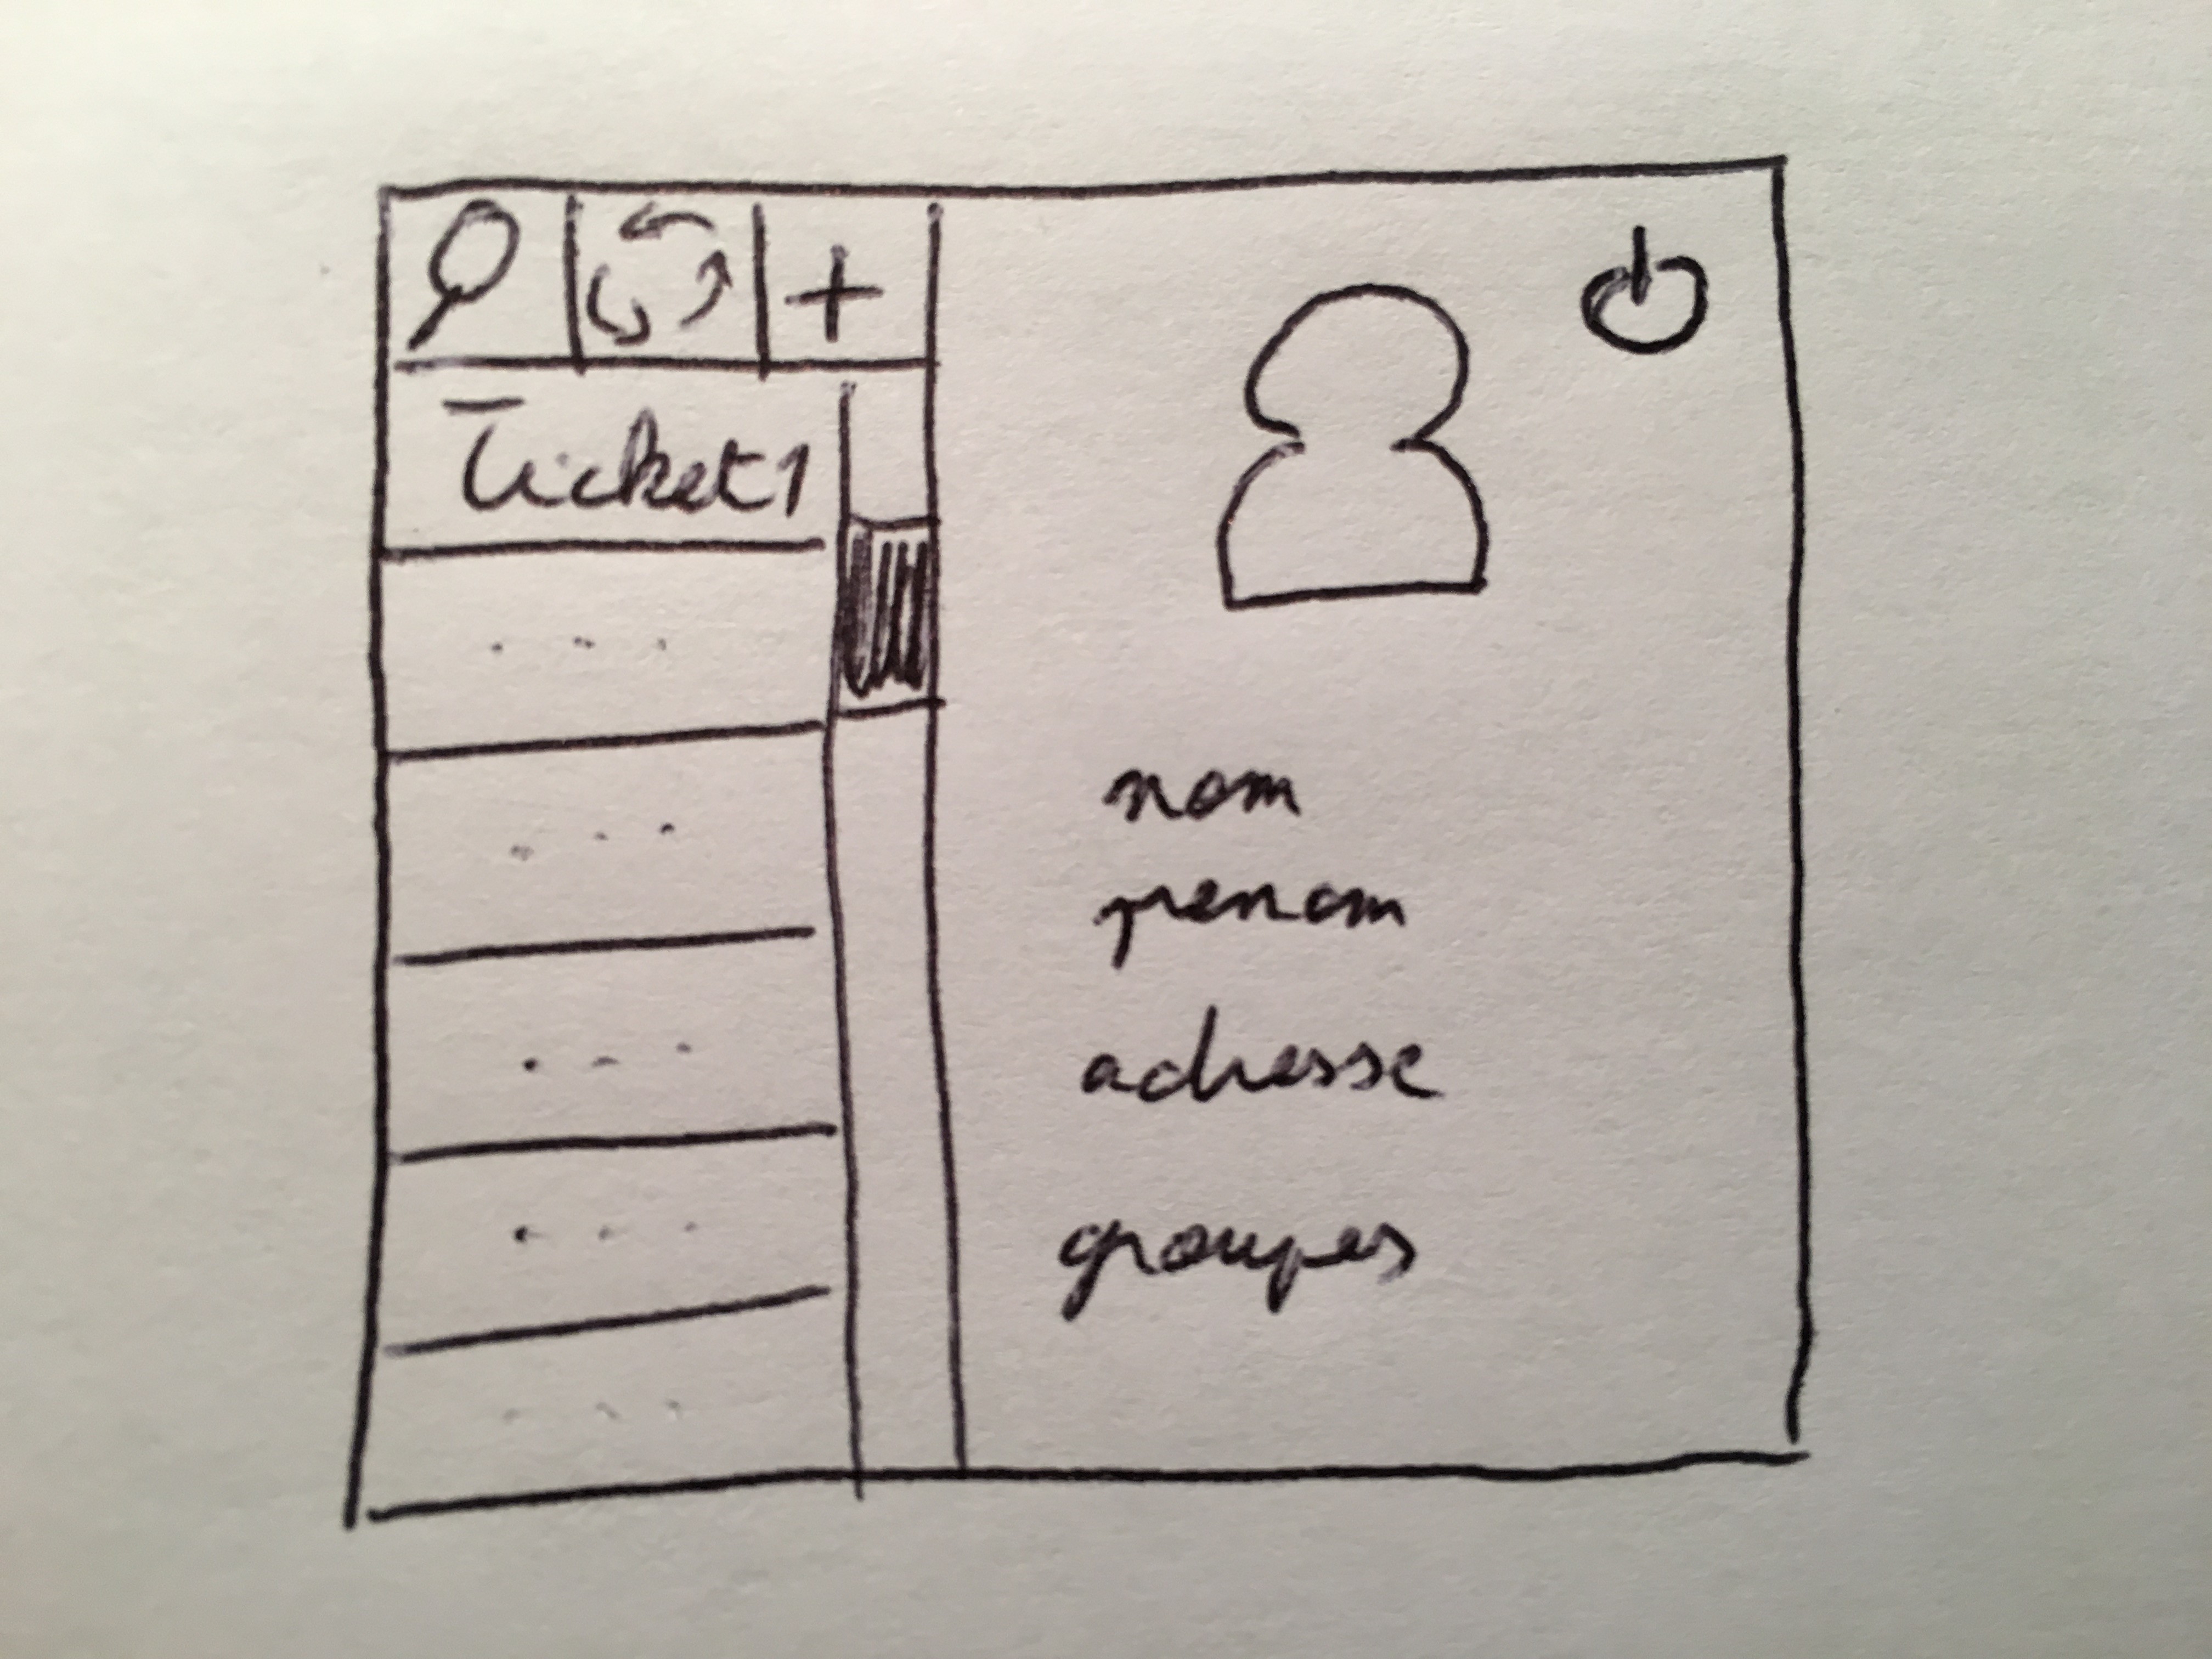 +
Ticket1
...
...
...
...
...
nom
prenom
adresse
groupes